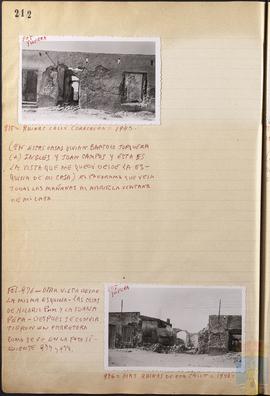 212
915 - RUINAS CALLE CORREDERA - 1945.
(EN ESTAS CASAS VIVIAN BARTOLO JUNQUERA
(A) INGLES Y JUAN CAMPOS Y ESTA ES
LA VISTA QUE ME QUEDÓ DESDE LA ES-
QUINA DE MI CASA) EL PANORAMA QUE VEIA
TODAS LAS MAÑANAS AL ABRIR LA VENTANA
DE MI CASA.
FOTO. 976 - OTRA VISTA DESDE
LA MISMA ESQUINA - LAS CASAS
DE HILARIO Y LA JUANA
PEPA - DESPUES SE CONVIR
TIERON EN CARRETERA
COMO SE VE EN LA FOTO SI-
GUIENTE 977 y 978.
976 - MAS RUINAS DE CALLE - 1945 -